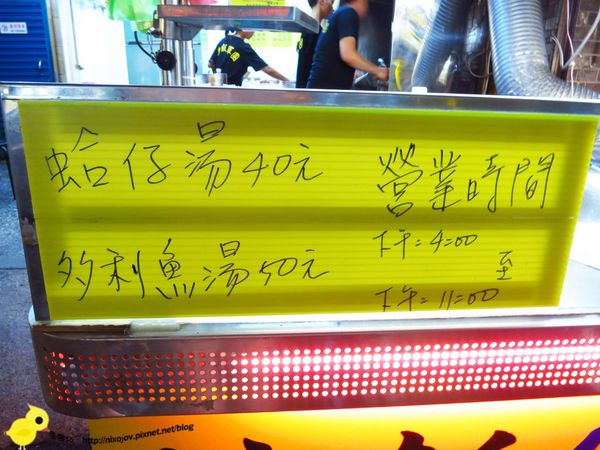 蛤仔湯40元
多利魚湯50元
營業時間
下午=4=00
至
下午=11=00
http://nixojov.pixnet.net/blog